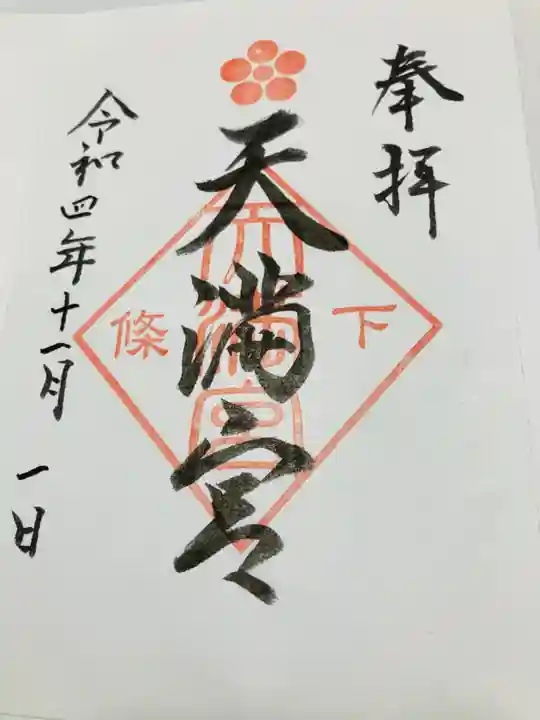 奉拝
下條
天満宮
天満宮
令和四年十一月一日